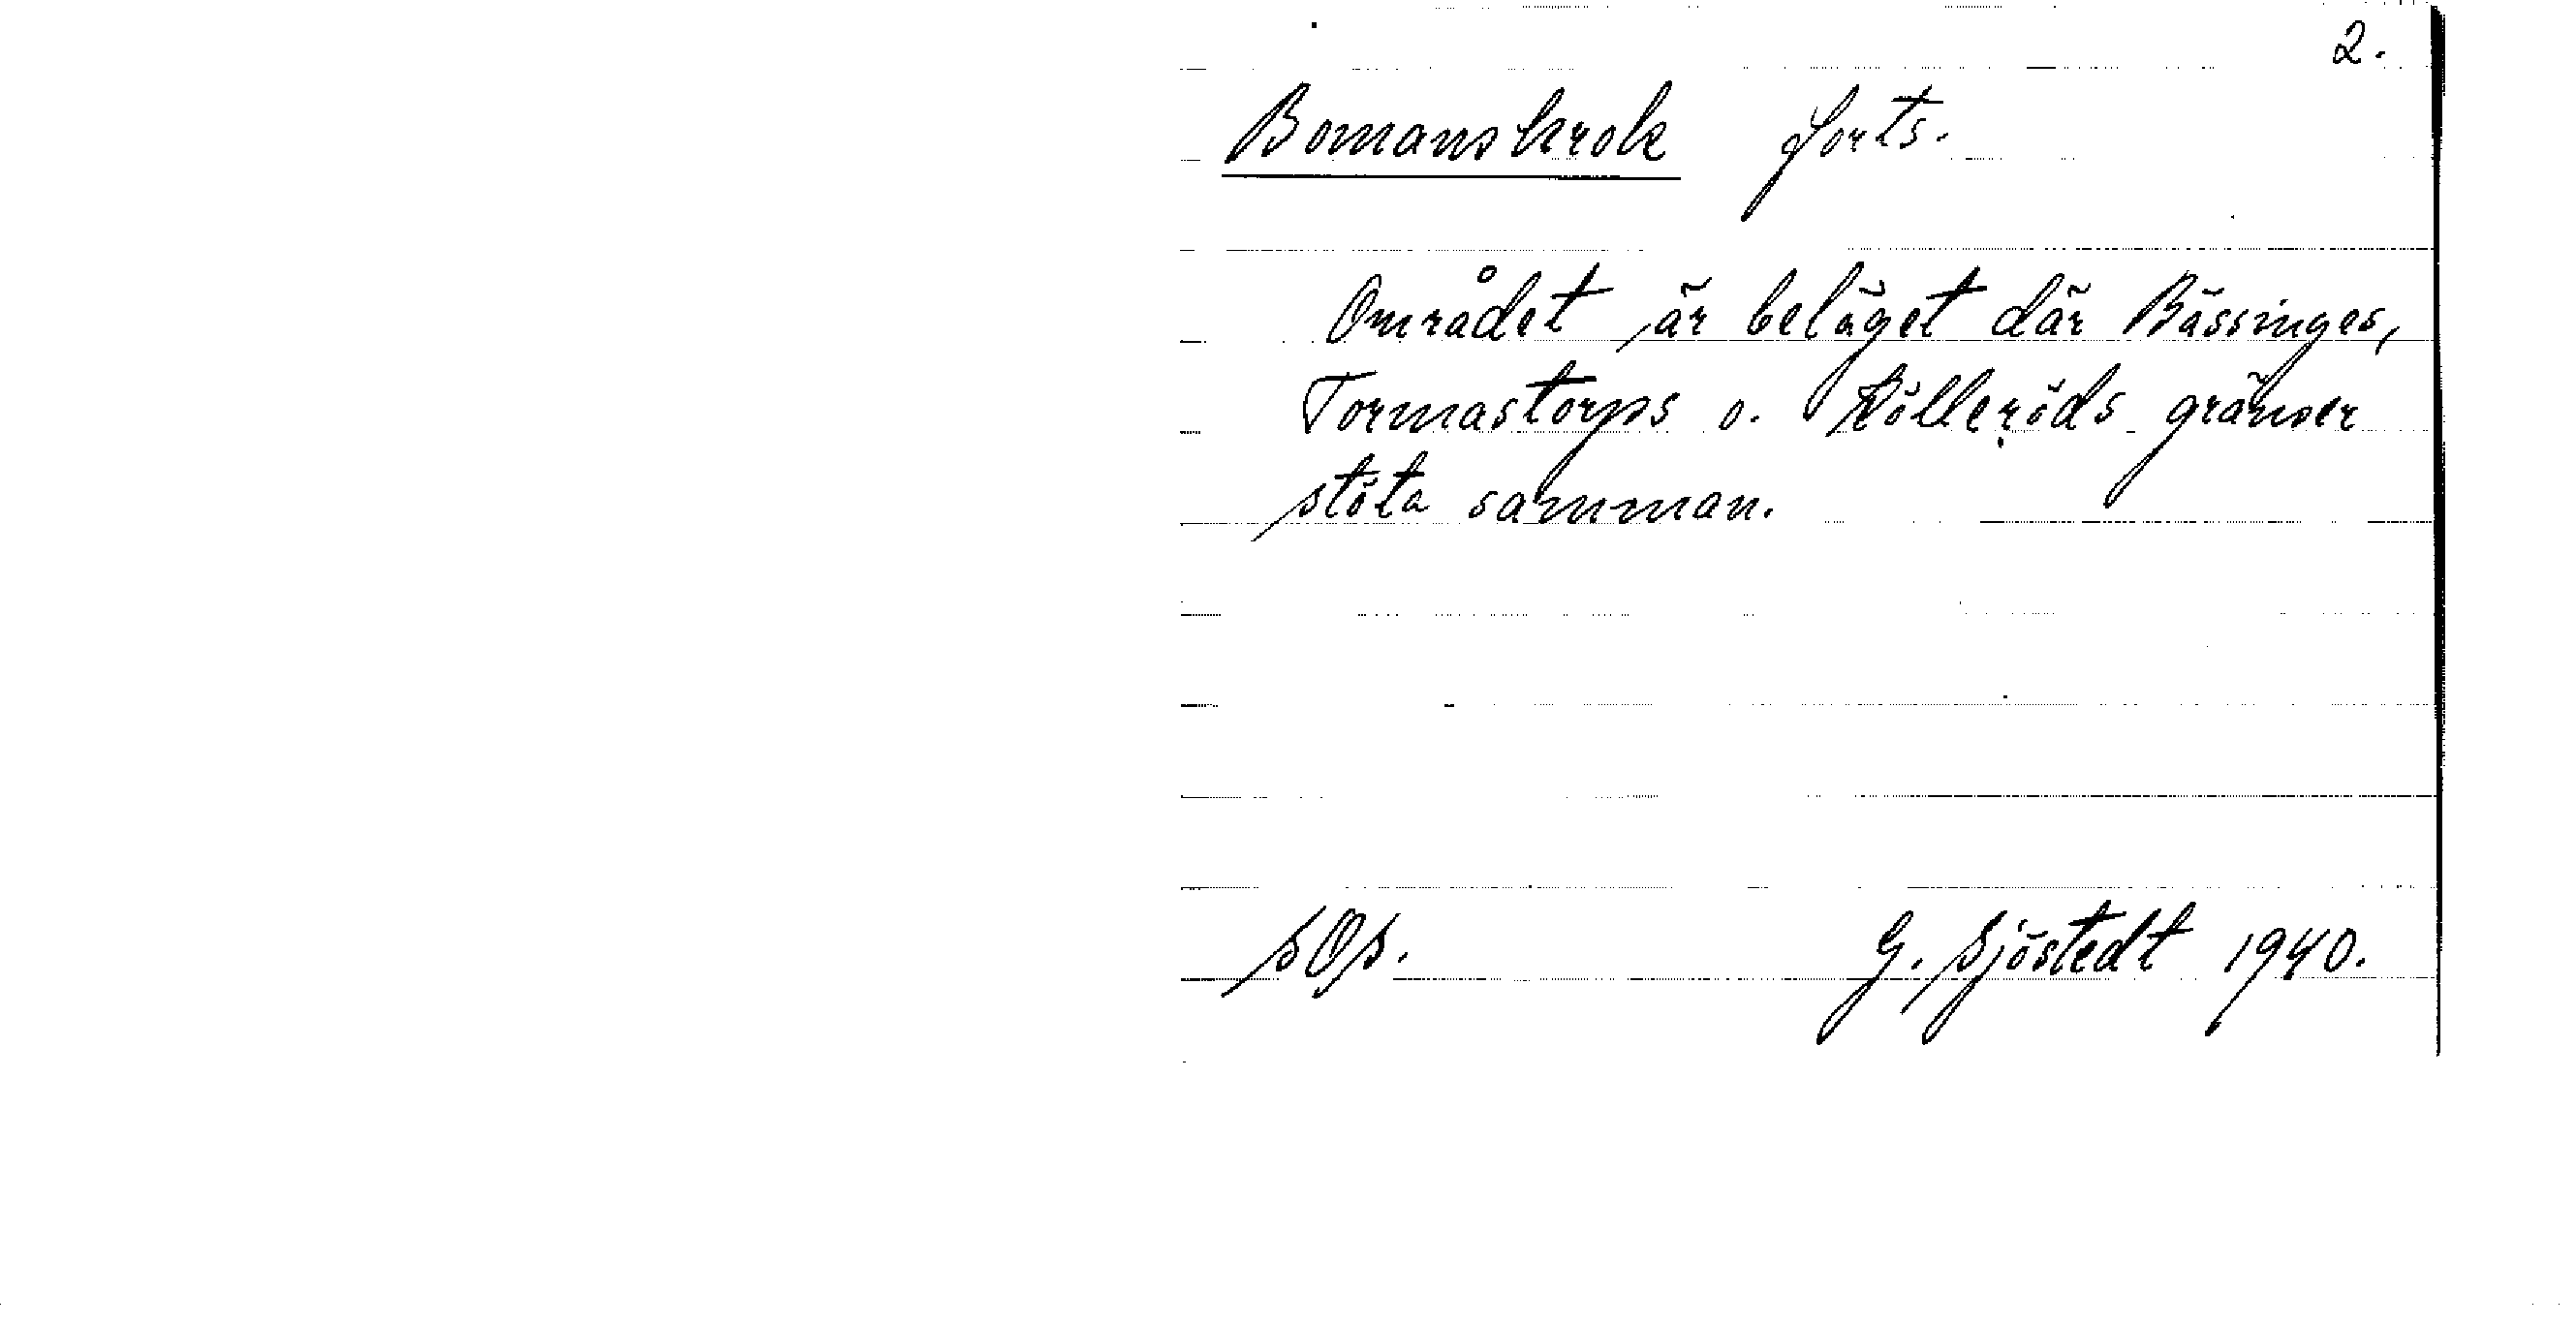 2.
Bomanskrok forts.
Området är beläget där Bässinges,
Tormastorps o. Rölleröds gränser
stöta samman.
sOs. G. Sjöstedt 1940.